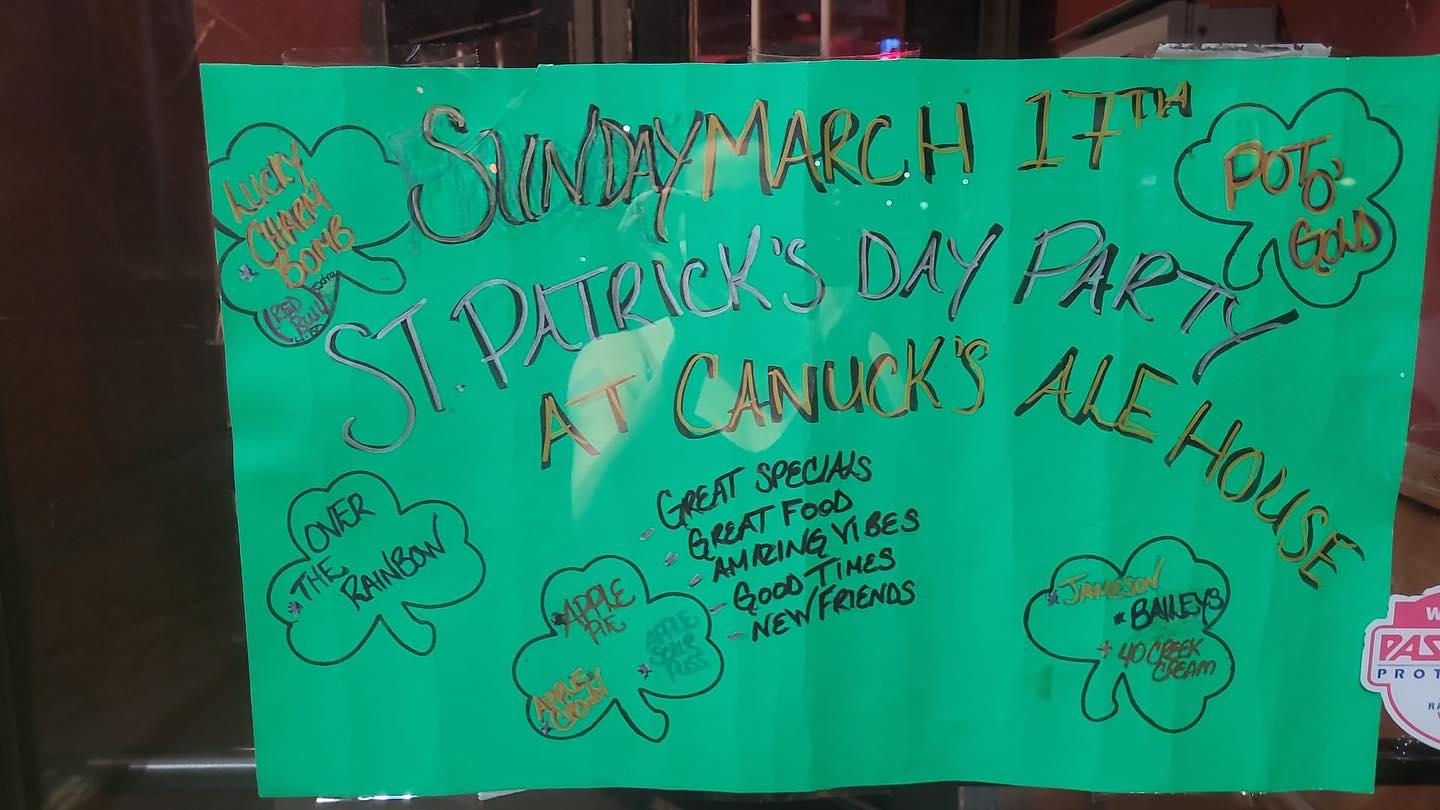 SUNDAY MARCH 17TH
ST. PATRICK'S DAY PARTY
AT CANUCK'S ALE HOUSE
LUCKY
CHARM
BOMB
* RED
BULL
POT O'
GOLD
- GREAT SPECIALS
- GREAT FOOD
- AMAZING VIBES
- GOOD TIMES
- NEW FRIENDS
OVER
* THE RAINBOW
* APPLE
PIE
* APPLE
SOUR
PUSS
* APPLE
CROWN
* JAMESON
* BAILEYS
* 40 CREEK
CREAM
W
PAS
PROT
RA